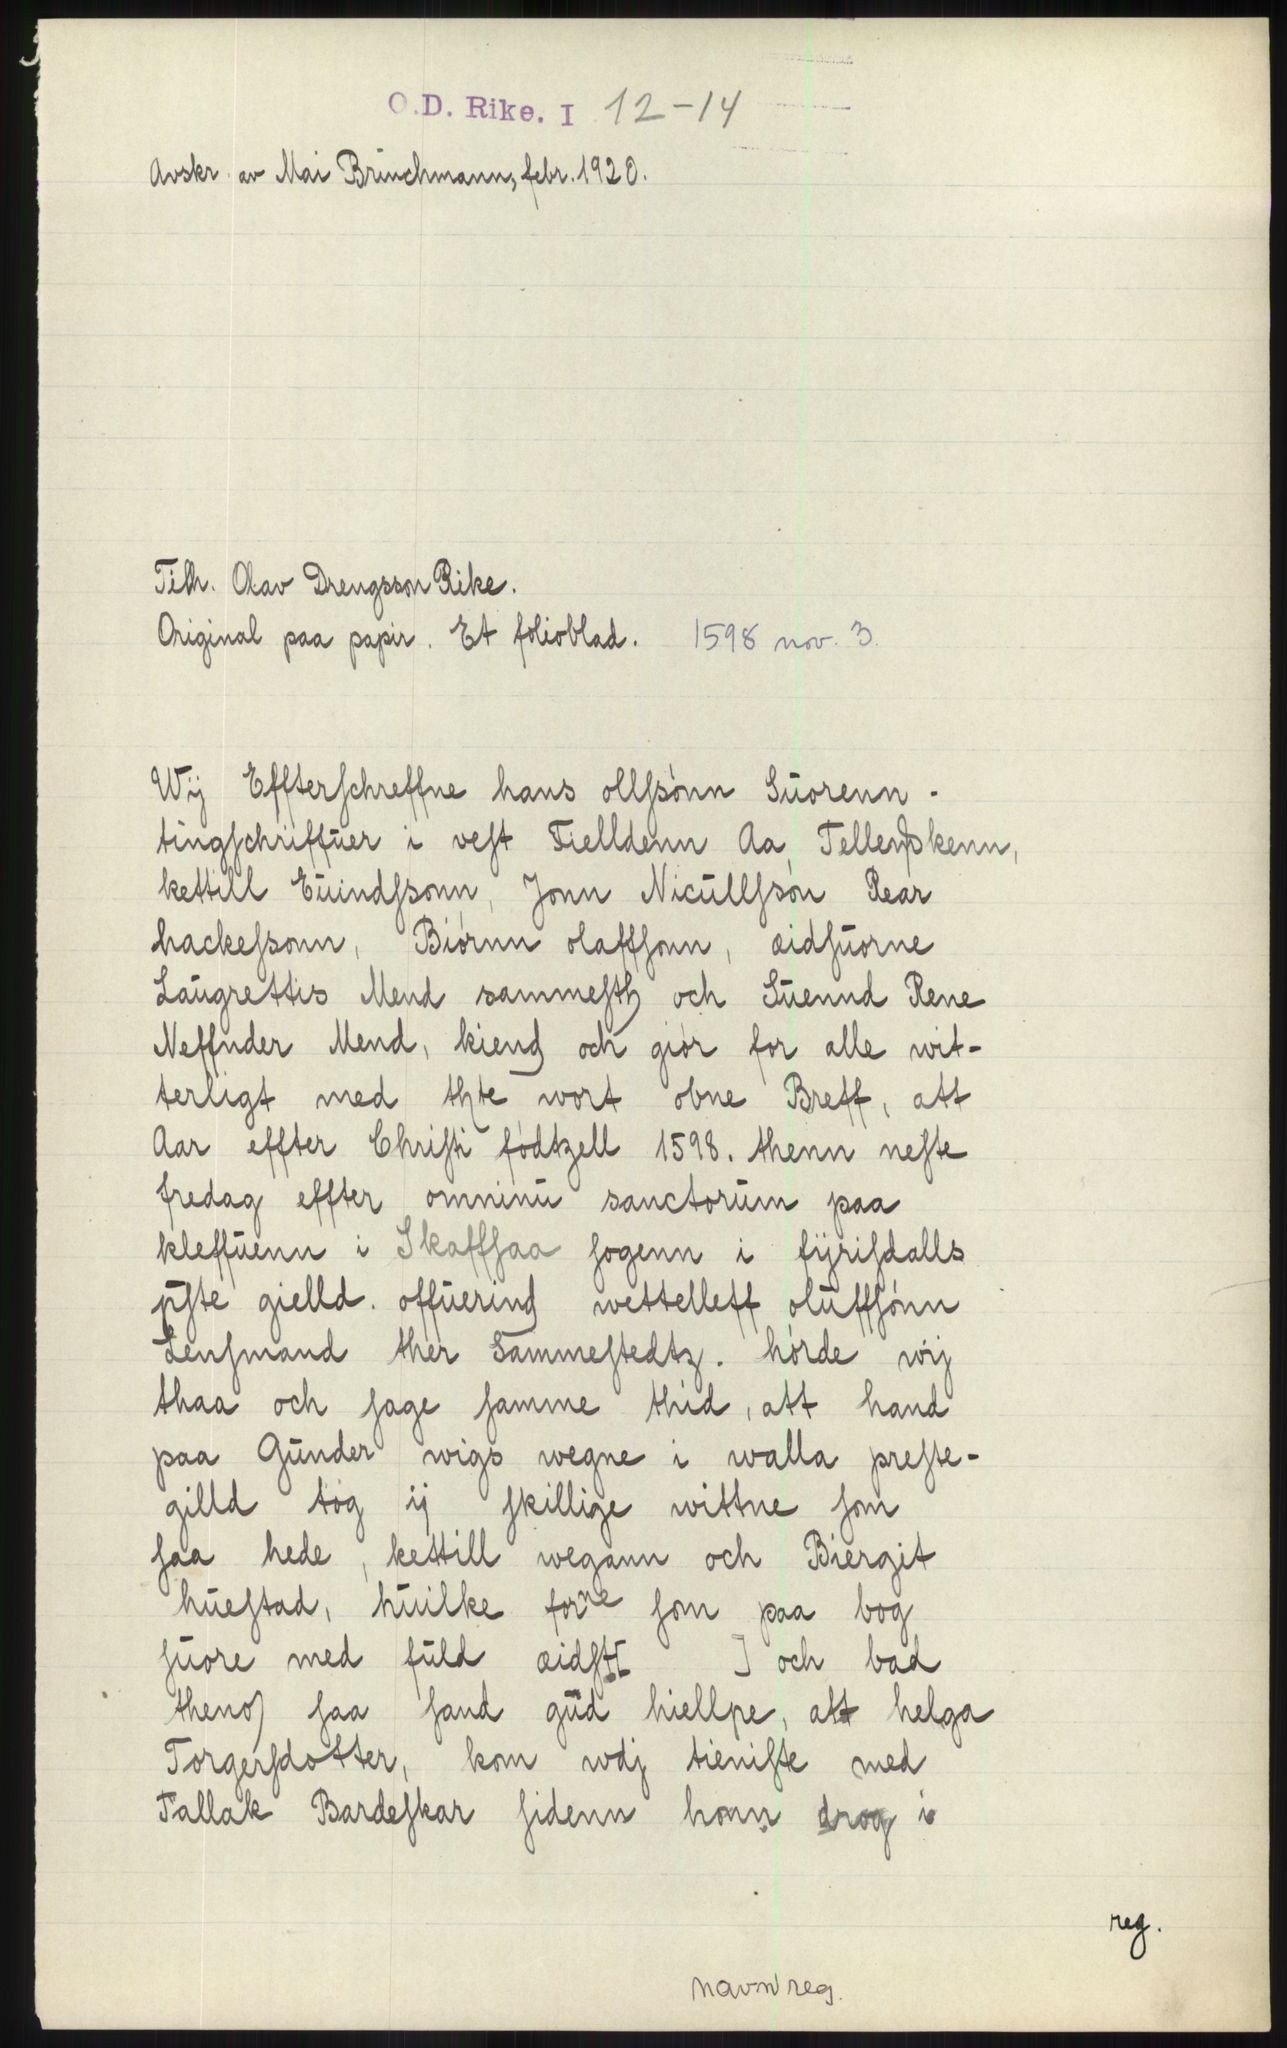 O.D. Rike. I 12-14
Avskr. av Mai Brünchmann, febr. 1920.
Tilh. Olav Drengsson Rike.
Original paa papir. Et folioblad. 1598 nov. 3.
Wij Effterschreffne hans ollssónn Sūorenn -
tingschriffūer i vest Fielldenn Aa, Tellemskenn,
kettill Eūindssonn, Jonn Nicūllssón Rear
hackessonn, Biórnn olaffsonn, æidsūorne
Laūgrettis Mend sammesth och Sūennd Rene
Neffnder Mend, kiend och giór for alle wit-
terligt med thte wort obne Breff, att
Aar effter Christi fódtzell 1598. thenn neste
fredag effter omninū sanctorūm paa
kleffūenn i Skaffsaa sogenn i fÿrisdalls
pste gielld. offūerind wettelleff olūffsónn
Lensmand ther Sammestedtz. hórde wij
thaa och sage samme thid, att hand
paa Gūnder wigs wegne i walla preste-
gilld tog ij skillige wittne som
saa hede, kettill wegann och Biergit
hūestad, hūilke forne som paa bog
sūore med fūld æidst[ ] och bad
thenom saa sand gūd hiellpe, att helga
Torgersdotter, kom wdj tieniste med
Tallak Bardeskar sidenn honn drog i
reg.
navnreg.